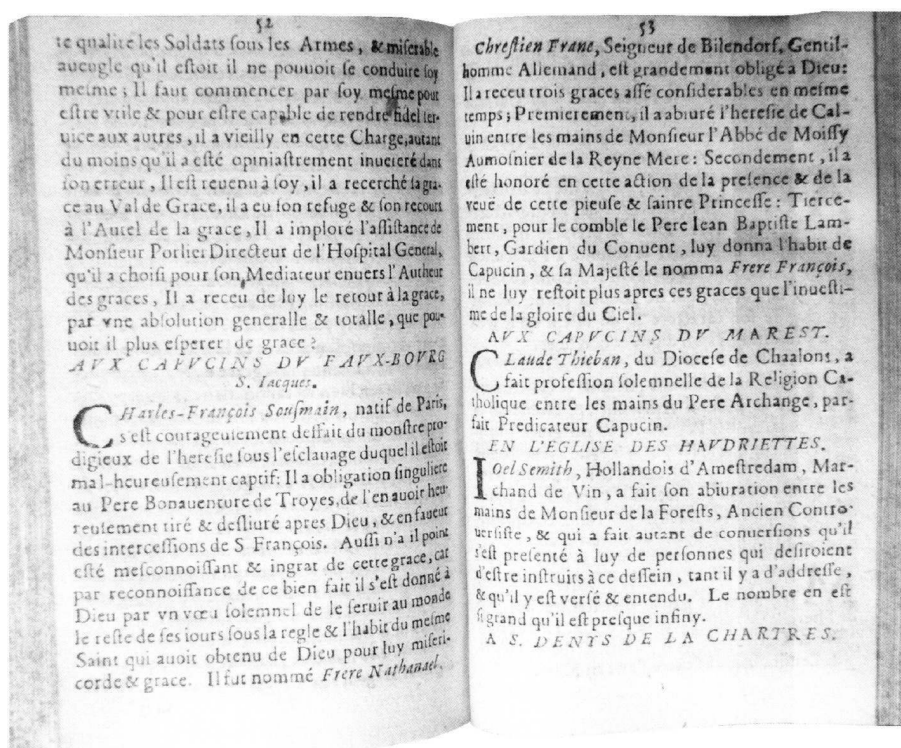 52
te qualité les Soldats sous les Armes, & miserable
aueugle qu'il estoit il ne pouuoit se conduire soy
mesme; Il faut commencer par soy mesme pour
estre vtile & pour estre capable de rendre fidel ser-
uice aux autres, il a vieilly en cette Charge, autant
du moins qu'il a esté opiniastrement inueteré dans
son erreur, Il est reuenu à soy, il a recerché sa gra-
ce au Val de Grace, il a eu son refuge & son recours
à l'Autel de la grace, Il a imploré l'assistance de
Monsieur Porlier Directeur de l'Hospital General,
qu'il a choisi pour son Mediateur enuers l'Autheur
des graces, Il a receu de luy le retour à la grace,
par vne absolution generalle & totalle, que pou-
uoit il plus esperer de grace?
AVX CAPVCINS DV FAVX-BOVRG
S. Iacques.
CHarles-François Sousmain, natif de Paris,
s'est courageusement deffait du monstre pro-
digieux de l'heresie sous l'esclauage duquel il estoit
mal-heureusement captif: Il a obligation singuliere
au Pere Bonauenture de Troyes, de l'en auoir heu-
reusement tiré & desliuré apres Dieu, & en faueur
des intercessions de S François. Aussi n'a il point
esté mesconnoissant & ingrat de cette grace, car
par reconnoissance de ce bien fait il s'est donné à
Dieu par vn vœu solemnel de le seruir au monde
le reste de ses iours sous la regle & l'habit du mesme
Saint qui auoit obtenu de Dieu pour luy miseri-
corde & grace. Il fut nommé Frere Nathanael.
53
Chrestien Franc, Seigneur de Bilendorf, Gentil-
homme Allemand, est grandement obligé a Dieu:
Il a receu trois graces assé considerables en mesme
temps; Premierement, il a abiuré l'heresie de Cal-
uin entre les mains de Monsieur l'Abbé de Moissy
Aumosnier de la Reyne Mere: Secondement, il a
esté honoré en cette action de la presence & de la
veuë de cette pieuse & sainte Princesse: Tierce-
ment, pour le comble le Pere Iean Baptiste Lam-
bert, Gardien du Conuent, luy donna l'habit de
Capucin, & sa Majesté le nomma Frere François,
il ne luy restoit plus apres ces graces que l'inuesti-
me de la gloire du Ciel.
AVX CAPVCINS DV MAREST.
CLaude Thieban, du Diocese de Chaalons, a
fait profession solemnelle de la Religion Ca-
tholique entre les mains du Pere Archange, par-
fait Predicateur Capucin.
EN L'EGLISE DES HAVDRIETTES.
IOel Semith, Hollandois d'Amestredam, Mar-
chand de Vin, a fait son abiuration entre les
mains de Monsieur de la Forests, Ancien Contro-
uersiste, & qui a fait autant de conuersions qu'il
s'est presenté à luy de personnes qui desiroient
d'estre instruits à ce dessein, tant il y a d'addresse,
& qu'il y est versé & entendu. Le nombre en est
si grand qu'il est presque infiny.
A S. DENYS DE LA CHARTRES.